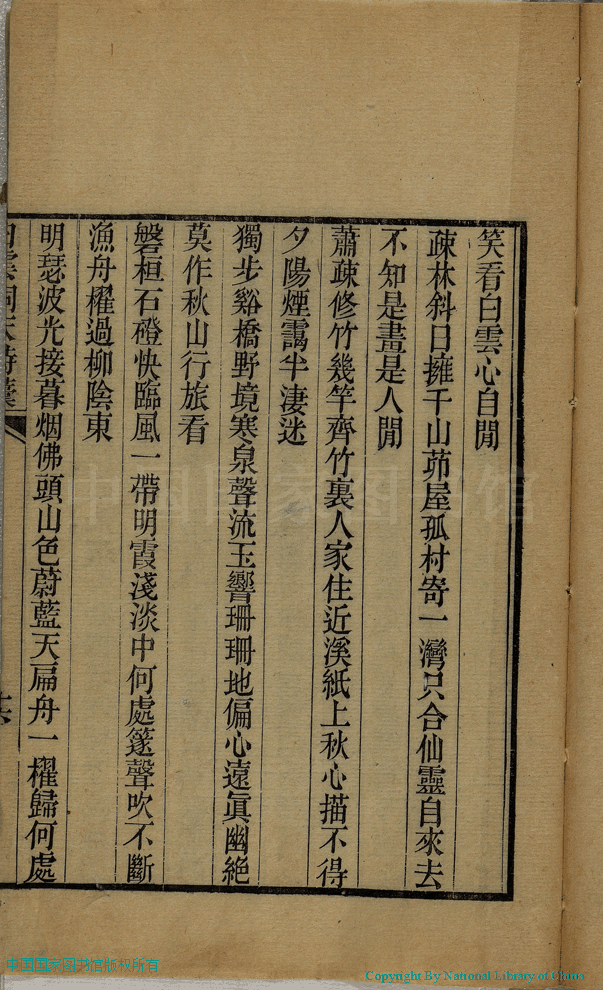 笑看白雲心自閒
疎林斜日擁千山茆屋孤村寄一灣只合仙靈自來去
不知是畫是人閒
蕭疎修竹幾竿齊竹裏人家住近溪紙上秋心描不得
夕陽煙靄半淒迷
獨步谿橋野境寒泉聲流玉響珊珊地偏心遠眞幽絕
莫作秋山行旅看
磐桓石磴快臨風一帶明霞淺淡中何處篴聲吹不斷
漁舟櫂過柳陰東
明瑟波光接暮烟佛頭山色蔚藍天扁舟一櫂歸何處
中国国家图书馆
中国国家图书馆版权所有
Copyright By National Library of China